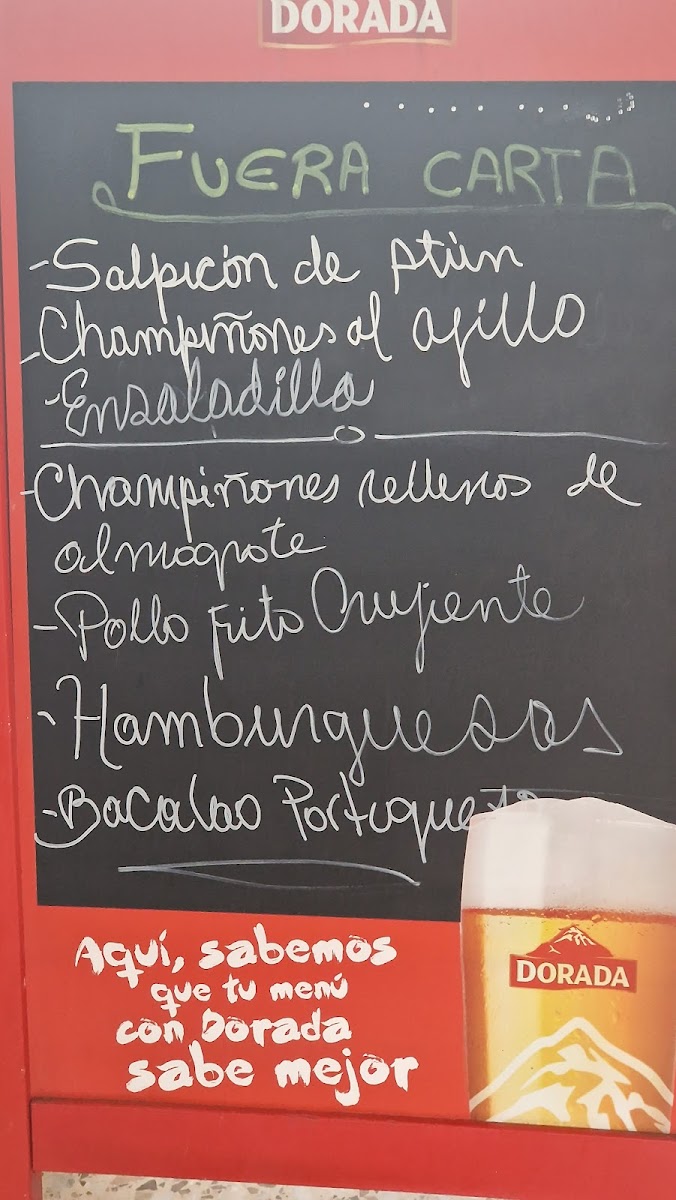 DORADA
FUERA CARTA
- Salpicón de Atún
- Champiñones al ajillo
- Ensaladilla
- Champiñones rellenos de
almogrote
- Pollo frito Crujiente
- Hamburguesas
- Bacalao Portuguesa
Aquí, sabemos
que tu menú
con Dorada
sabe mejor
DORADA